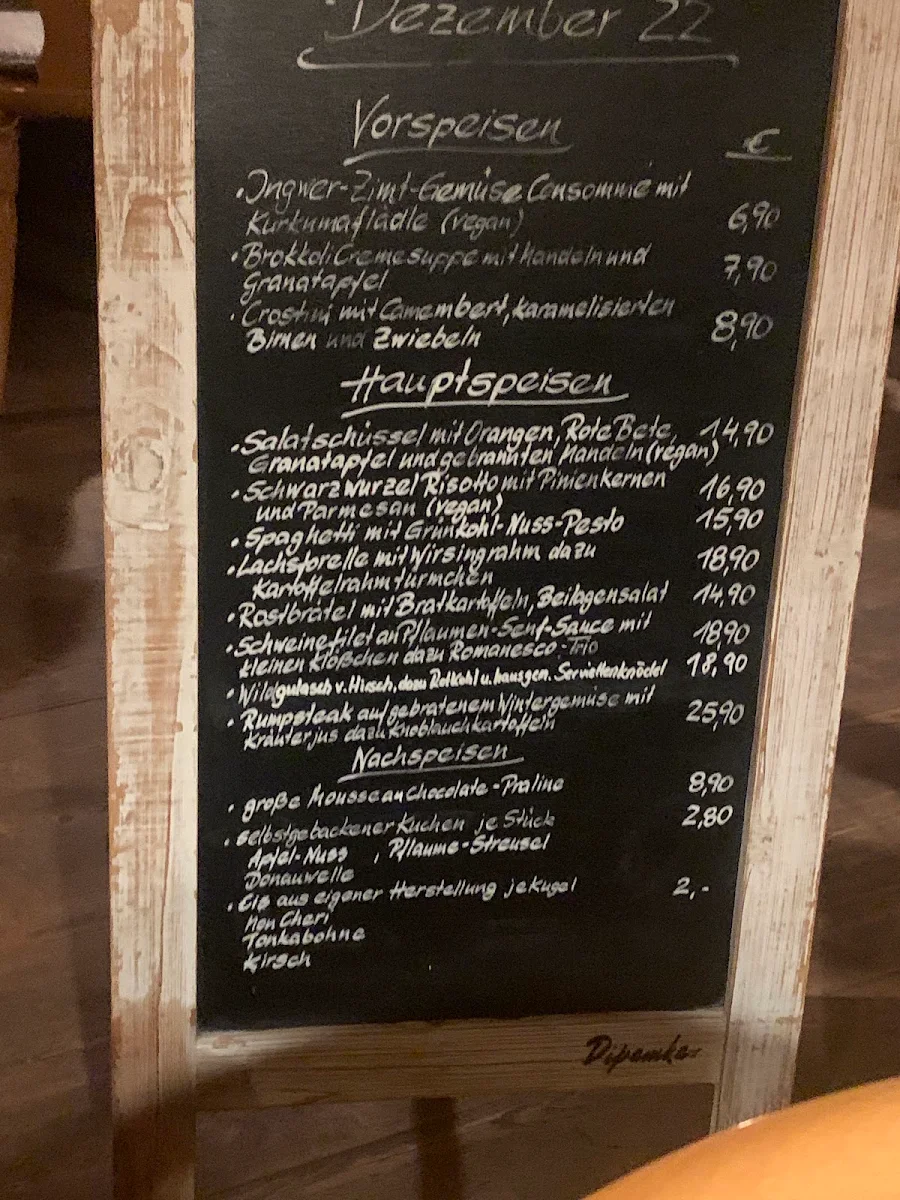 Dezember 22
Vorspeisen
€
• Ingwer-Zimt-Gemüse Consommié mit
Kurkumaflädle (vegan) 6,90
• Brokkoli Cremesuppe mit Mandeln und
Granatapfel 7,90
• Crostini mit Camembert, karamelisierten
Birnen und Zwiebeln 8,90
Hauptspeisen
• Salatschüssel mit Orangen, Rote Bete, 14,90
Granatapfel und gebrannten Mandeln (vegan)
• Schwarzwurzel Risotto mit Pinienkernen 16,90
und Parmesan (vegan)
• Spaghetti mit Grünkohl-Nuss-Pesto 15,90
• Lachsforelle mit Wirsingrahm dazu 18,90
Kartoffelrahmtürmchen
• Rostbrätel mit Bratkartoffeln, Beilagensalat 14,90
• Schweinefilet an Pflaumen-Senf-Sauce mit 18,90
kleinen Klößchen dazu Romanesco-Trio
• Wildgulasch v. Hirsch, dazu Rotkohl u. hausgem. Serviettenknödel 18,90
• Rumpsteak auf gebratenem Wintergemüse mit 25,90
Kräuterjus dazu Knoblauchkartoffeln
Nachspeisen
• große Mousse au Chocolate-Praline 8,90
• selbstgebackener Kuchen je Stück 2,80
Apfel-Nuss , Pflaume-Streusel
Donauwelle
• Eis aus eigener Herstellung je Kugel 2,-
Mon Cheri
Tonkabohne
Kirsch